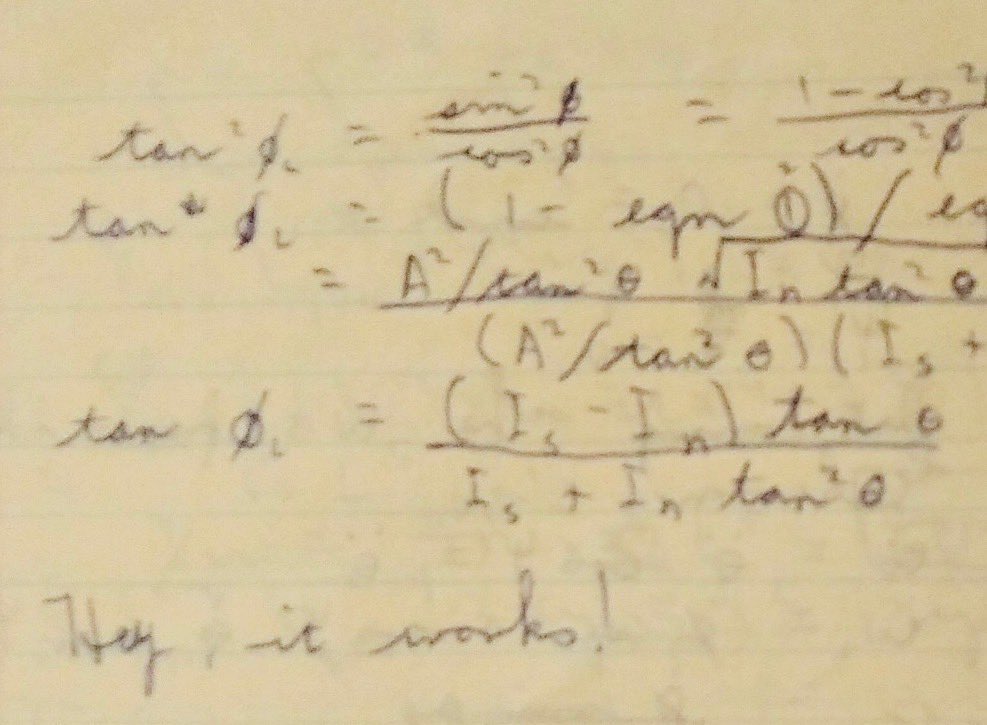 tan²ϕ₁ = sin²ϕ / cos²ϕ = 1 - cos²ϕ / cos²ϕ
tan ϕ₁ = (1 - eqn ①²) /
= A²/tan²θ √Iₙ tan²θ
(A²/tan²θ)(Iₛ +
tan ϕ₁ = (Iₛ - Iₙ) tan θ
Iₛ + Iₙ tan²θ
Hey, it works!